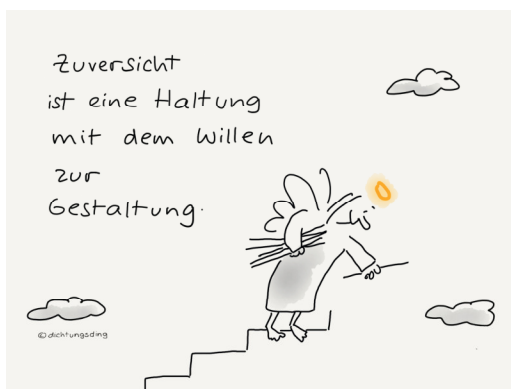 Zuversicht
ist eine Haltung
mit dem Willen
zur
Gestaltung.
© dichtungsding